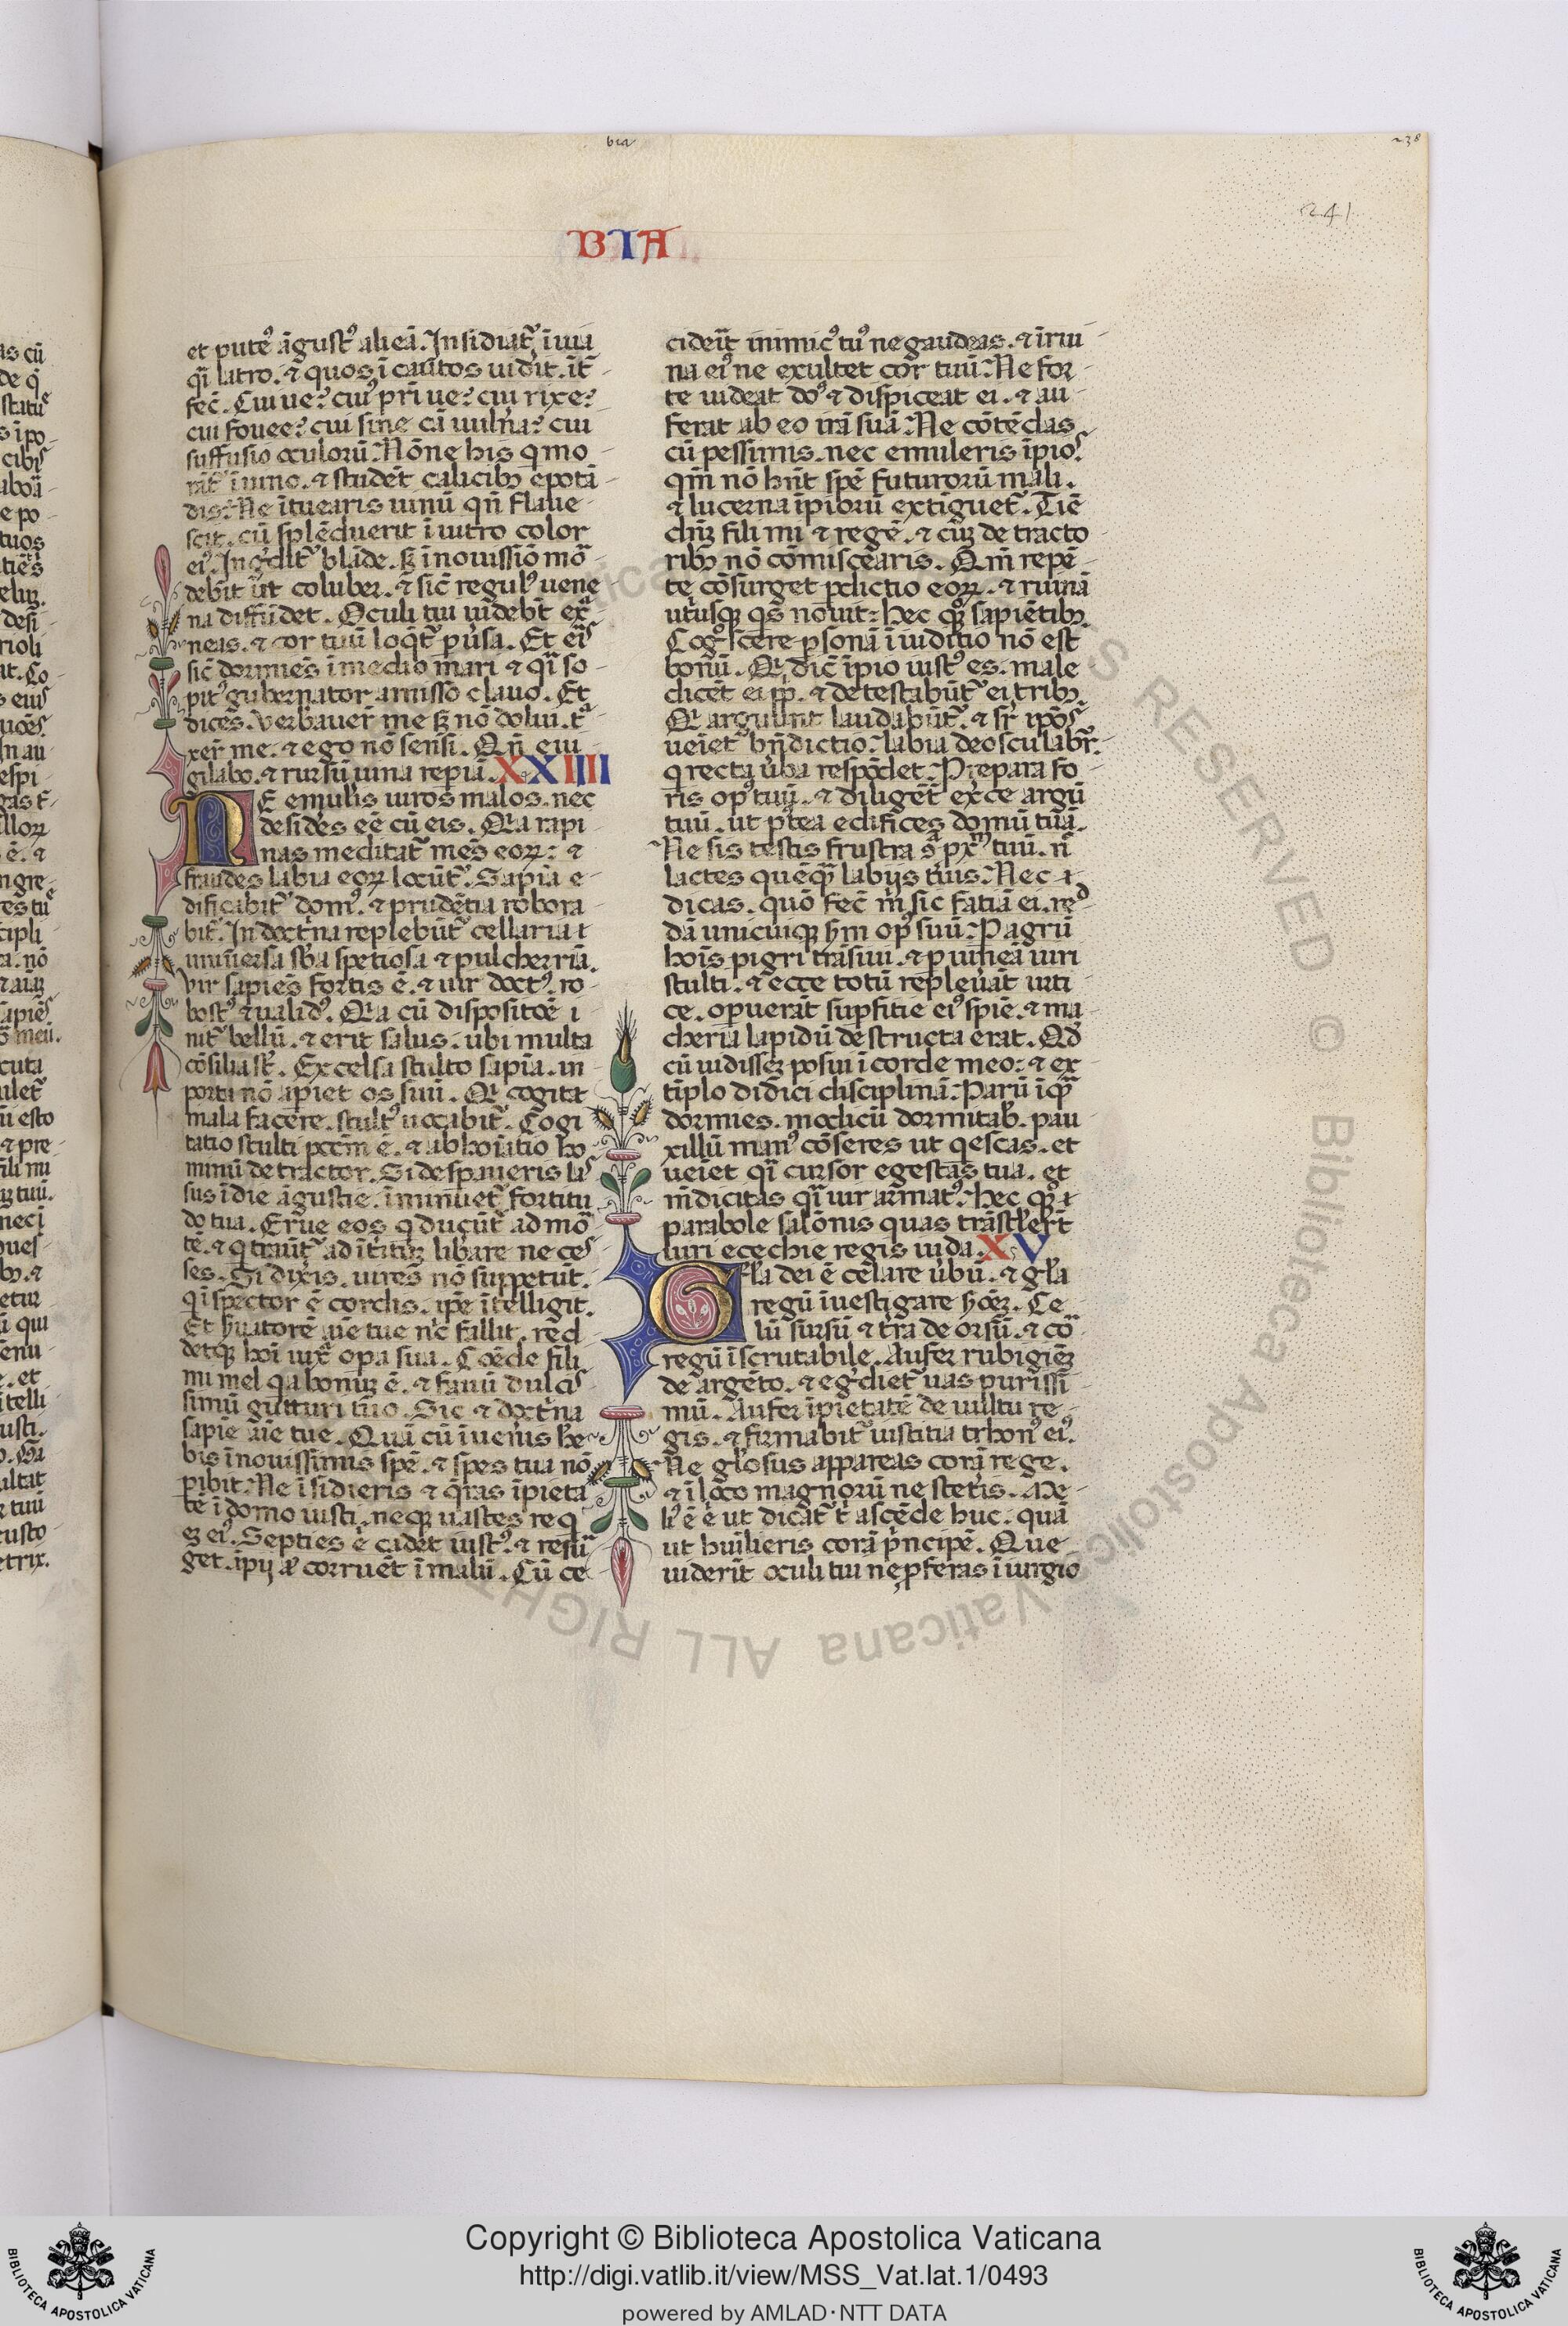 bia
238
241
BIA
et puteꝰ āgustꝰ aliea. Insidiat᷑ ī uia
q̄i latro. ⁊ quos ī cauītos uid̄it. īt̄-
fec̄. Cui ue? cuiꝰ pr̄i ue? cui rixe?
cui fouee? cui sine cā uuln̄a? cui
suffusio oculorū? Nōne his q̇ mo-
rāt᷑ ī uino. ⁊ studēt calicibꝫ epotā-
dis? Ne ītuearis uinū qn̄ flaue-
scit. cū splēduerit ī uitro color
eiꝰ. Ingrēdit᷑ blāde. sꝫ ī nouissiō mo-
debit ūt coluber. ⁊ sic̄ regulꝰ uene
na diffūdet. Oculi tui uidebt̄ ex̄-
neas. ⁊ cor tuū loq̄t᷑ puīsa. Et eīs
sic̄ dormiēs ī medio mari ⁊ q̄i so-
pitꝰ gubernator amisso clauo. Et
dices. Verbauer̄ me sꝫ nō dolui. t̄-
xer̄ me. ⁊ ego nō sensi. Qn̄ eui-
gilabo. ⁊ rursū uina repiā. XXIIII
NE emul̄is uiros malos. nec
desid̄es eē cū eis. Q̄a rapi-
nas meditat᷑ mēs eoꝝ: ⁊
fraudes labia eoꝝ locūt᷑. Sapīa e-
dificabit᷑ domꝰ. ⁊ prudētia robora-
bit᷑. In doctr̄na replebūt᷑ cellaria ⁊
uniūersa sb̄a spetiosa ⁊ pulcherrīa.
Vir sapiēs fortis ē. ⁊ uir doctꝰ. ro-
bostꝰ ⁊ ualidꝰ. Q̄a cū dispositōē i-
nit᷑ bellū. ⁊ erit salus. ubi multa
cōsilia st̄. Excelsa stulto sapīa. in
porta nō apiet os suū. Qi cogitat
mala facere. stultꝰ uocabit᷑. Cogi
tatio stulti pcc̄m ē. ⁊ abhoīatio ho-
minū detractor. Si despaueris las-
sus ī die āgustie. īminuet᷑ fortitu
do tua. Erue eos q ducūt᷑ ad mo᷑-
tē. ⁊ q trauūt᷑ ad īt̄itūꝫ lib̄are ne ces-
ses. Si dix̄is. uires nō suppetūt.
q īspector ē cordis. ip̄e ītelligit.
Et ẜuatorē aīe tue nīc fallit. red
detqꝫ hoī iux̄ opa sua. Coēde fili
mi mel q̄a bonūꝫ ē. ⁊ fauū dulcis-
simū gutturi tuo. Sic ⁊ doctr̄na
sapīe aīe tue. Quā cū īuen̄is he-
bis ī nouissimis spē. ⁊ spes tua nō
pibit. Ne īsidieris ⁊ q̄ras īpietā
tē ī domo iusti. neqꝫ uastes req
ēꝫ eiꝰ. Septies ē cadet iustꝰ. ⁊ resū-
get. ip̄ij aū corruēt ī malū. Cū ce-
cideīt inimicꝰ tuꝰ ne gaudeas. ⁊ ī rui-
na eiꝰ ne exultet cor tuū. Ne for-
te uideat dōs ⁊ displiceat ei. ⁊ au-
ferat ab eo irā suā. Ne cōtēdas
cū pessimis. nec emuleris īpios
qm̄ nō hn̄t spē futurorū mali.
⁊ lucerna īpiorū extīguet᷑. Tīē
dn̄ꝫ fili mi ⁊ regē. ⁊ cūꝫ detracto
ribꝫ nō cōmiscearis. Qm̄ repē-
te cōsurget pdictio eoꝝ. ⁊ ruinā
ut̄usqꝫ qs̄ nouit. Hec qꝫ sapiētibꝫ.
Cogꝰscere psonā ī iuditio nō est
bonū. Qi dic̄ īpio iustꝰ es. male
dicēt ei pp̄. ⁊ detestabūt᷑ ei tribꝫ.
Qi arguūnt laudabūt᷑. ⁊ sr̄ ip̄os
ueīet᷑ bn̄dictio. labia deosculabr᷑.
q recta ūba respōdet. Prepara fo
ris opꝰ tuū. ⁊ diligēt̄ ex̄ce agrū
tuū. ut p̄tea edifices domū tuā.
Ne sis testis frustra ɔ̄ px̄m tuū. n̄
lactes quēq̄ labijs tuis. Nec ⁊
dicas. quō fec̄ m̄ sic fatiā ei. red
dā unicuiqꝫ ẜm opꝰ suū. P agrū
hoīs pigri trāsiui. ⁊ p uineā uiri
stulti. ⁊ ecce totū repleūāt urti
ce. opuerāt supfitie eiꝰ spīe. ⁊ ma
cheria lapidū destructa erat. Qd̄
cū uidisseꝫ posui ī corde meo: ⁊ ex
ēplo didici disciplinā. Parū īq̄
dormies. modicū dormitab̄. pau
xillū manꝰ cōseres ut qescas. et
ueīet q̄i cursor egestas tua. et
m̄dicitas q̄i uir armatꝰ. Hec qꝫ ⁊
parabole salōnis quas trāstl̄er̄t
uiri ecechie regis iuda. XXV
Gl̄a dei ē celare ūbū. ⁊ gl̄a
regū īuestigare ẜōēꝫ. Ce
lū sursū ⁊ t̄ra deorsū. ⁊ co᷑
regū īscrutabile. Aufer rubigiēꝫ
de argēto. ⁊ eg̊diet᷑ uas purissi-
mū. Aufer īpietatē de uultu re-
gis. ⁊ firmabit᷑ iustitia trhonꝰ eiꝰ.
Ne gl̄osus appareas corā rege.
⁊ ī loco magnorū ne steris. Me-
lꝰ ē ē ut dicat᷑ t̄ ascēde huc. quā
ut humilieris corā p̄ncipē. Que
uiderīt oculi tui ne pferas ī iurgio
Copyright © Biblioteca Apostolica Vaticana
http://digi.vatlib.it/view/MSS_Vat.lat.1/0493
powered by AMLAD·NTT DATA
BIBLIOTECA APOSTOLICA VATICANA
BIBLIOTECA APOSTOLICA VATICANA